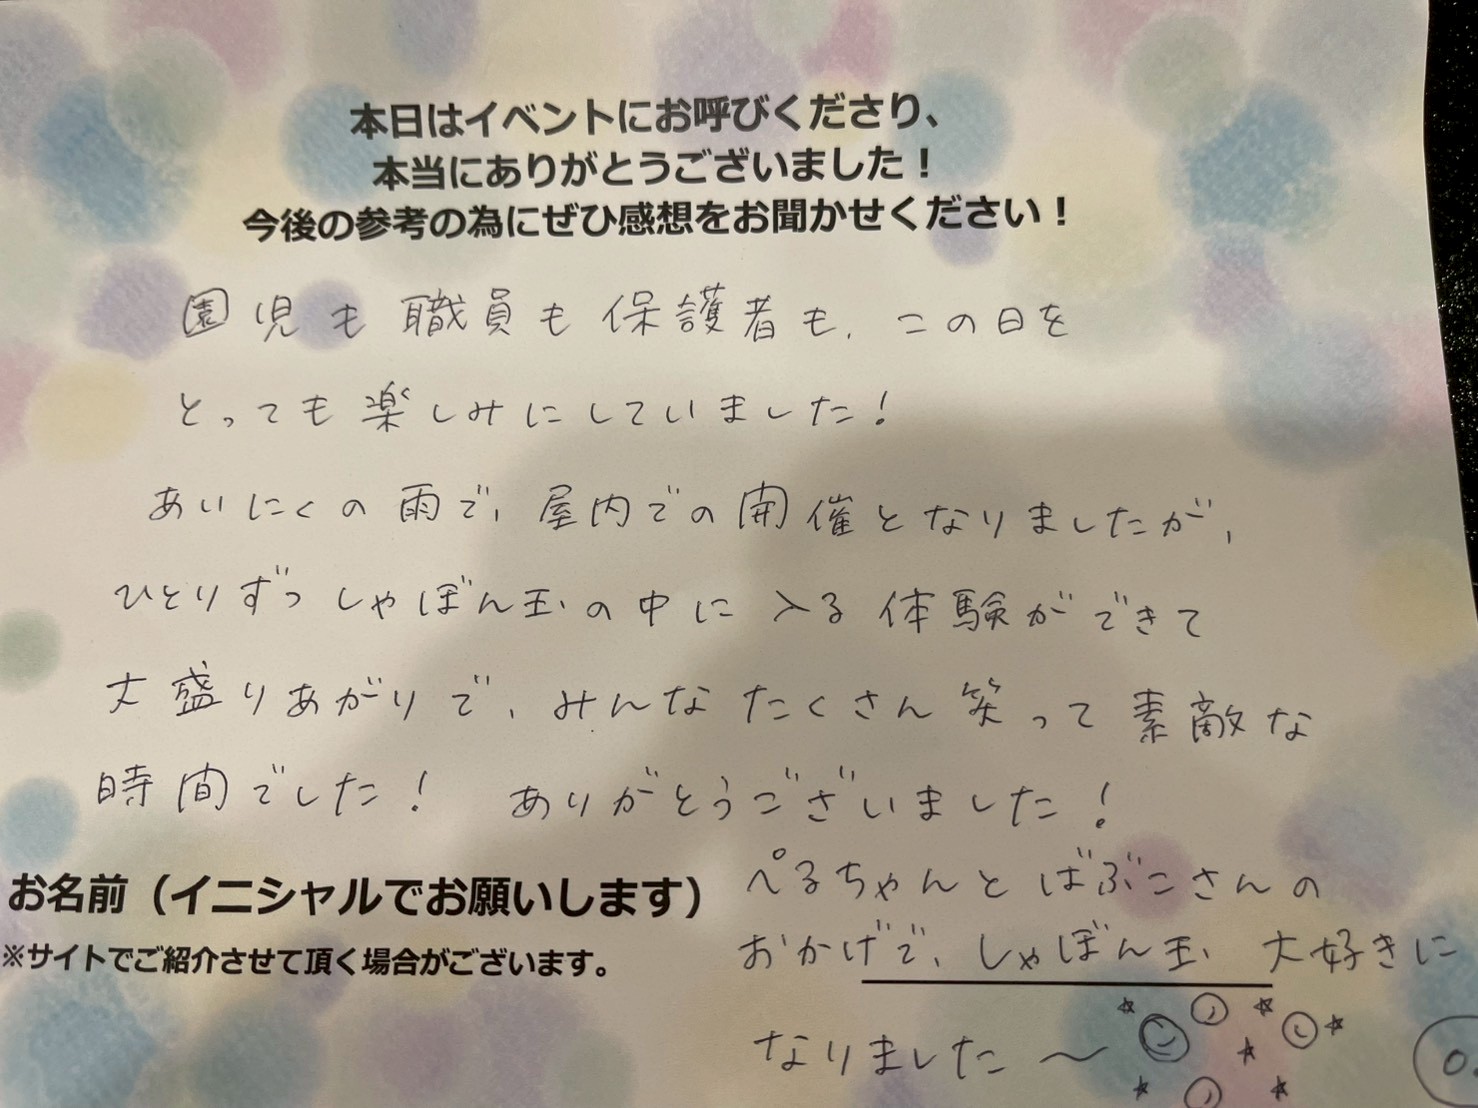 本日はイベントにお呼びくださり、
本当にありがとうございました！
今後の参考の為にぜひ感想をお聞かせください！
園児も職員も保護者も、この日を
とっても楽しみにしていました！
あいにくの雨で、屋内での開催となりましたが、
ひとりずつしゃぼん玉の中に入る体験ができて
大盛りあがりで、みんなたくさん笑って素敵な
時間でした！ ありがとうございました！
ぺるちゃんとばぶこさんの
おかげで、しゃぼん玉大好きに
なりました〜
お名前（イニシャルでお願いします）
※サイトでご紹介させて頂く場合がございます。